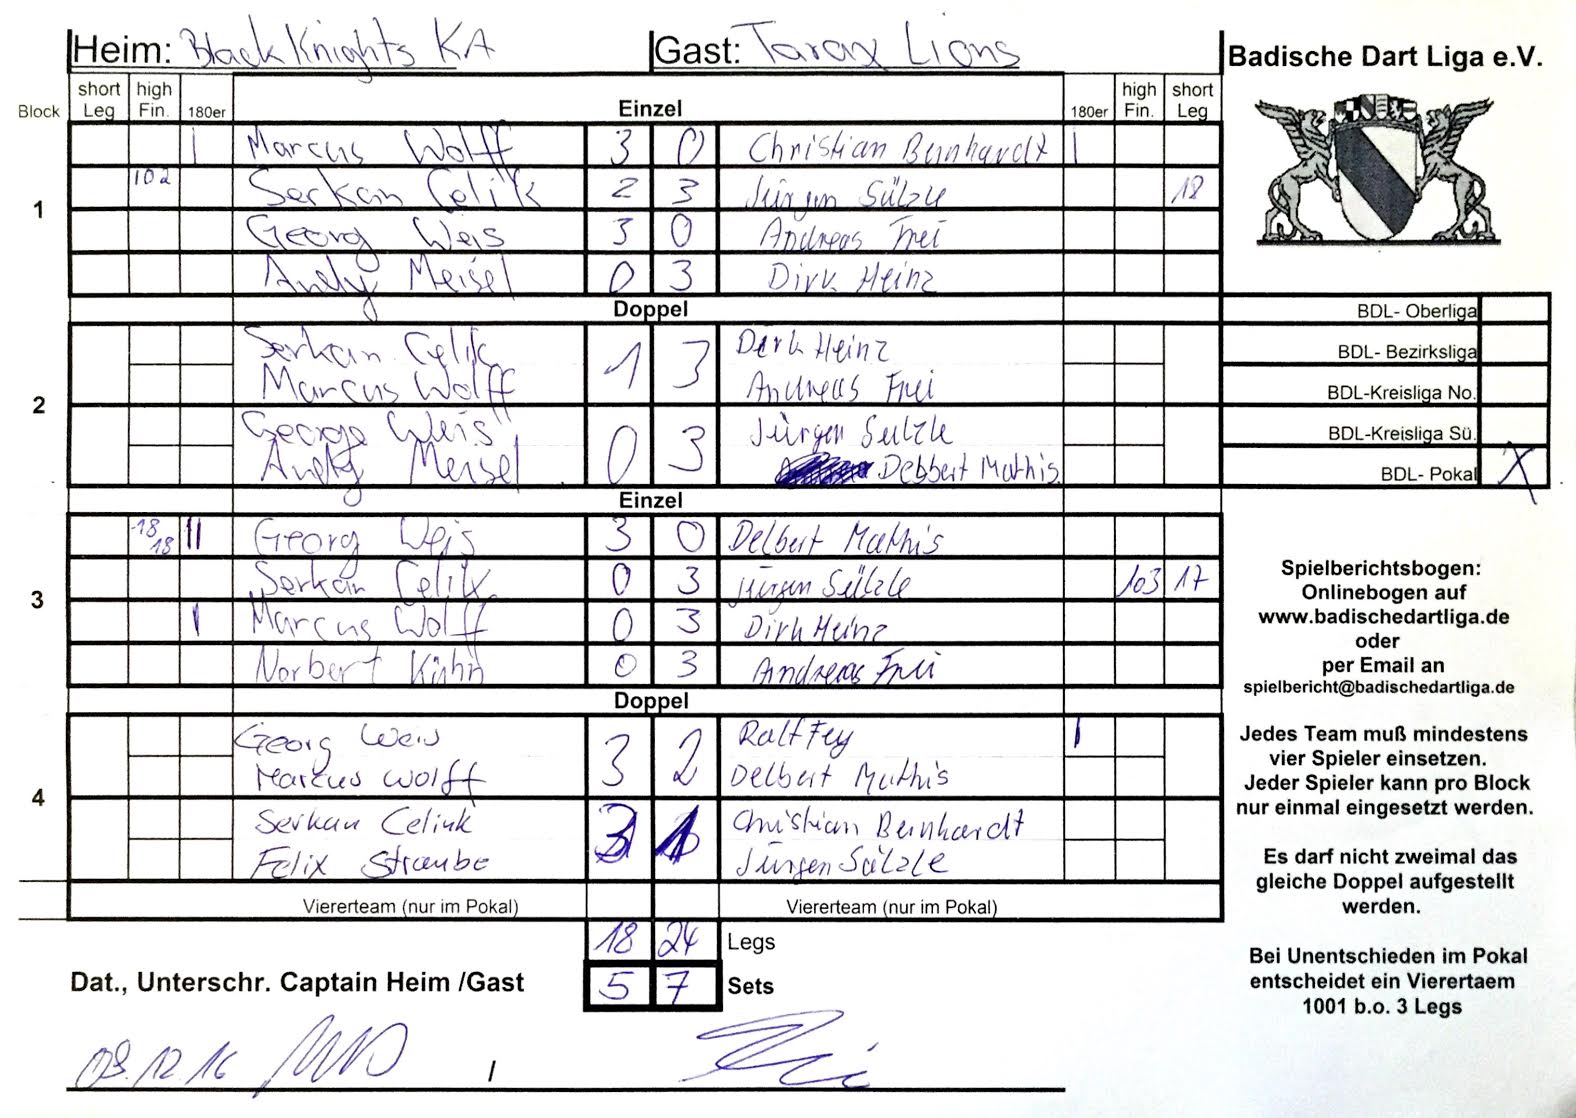 Heim: Black Knights KA Gast: Tarax Lions
Badische Dart Liga e.V.
Block short Leg high Fin. 180er Einzel 180er high Fin. short Leg
1
| Marcus Wolff 3 0 Christian Bernhardt |
102 Serkan Celik 2 3 Jürgen Sülzle 18
Georg Weis 3 0 Andreas Frei
Andy Meisel 0 3 Dirk Heinz
Doppel
2
Serkan Celik 1 3 Dirk Heinz
Marcus Wolff Andreas Frei
George Weis 0 3 Jürgen Sülzle
Andy Meisel Debbert Mathis
Einzel
3
18 18 || Georg Weis 3 0 Delbert Mathis
Serkan Celik 0 3 Jürgen Sülzle 103 17
| Marcus Wolff 0 3 Dirk Heinz
Norbert Kühn 0 3 Andreas Frei
Doppel
4
Georg Weis 3 2 Ralf Fey |
Marcus Wolff Delbert Mathis
Serkan Celink Christian Bernhardt
Felix Straube Jürgen Sülzle
Viererteam (nur im Pokal) Viererteam (nur im Pokal)
18 24 Legs
5 7 Sets
Dat., Unterschr. Captain Heim /Gast
09.12.16 /
BDL- Oberliga
BDL- Bezirksliga
BDL-Kreisliga No.
BDL-Kreisliga Sü.
BDL- Pokal X
Spielberichtsbogen:
Onlinebogen auf
www.badischedartliga.de
oder
per Email an
spielbericht@badischedartliga.de
Jedes Team muß mindestens
vier Spieler einsetzen.
Jeder Spieler kann pro Block
nur einmal eingesetzt werden.
Es darf nicht zweimal das
gleiche Doppel aufgestellt
werden.
Bei Unentschieden im Pokal
entscheidet ein Vierertaem
1001 b.o. 3 Legs